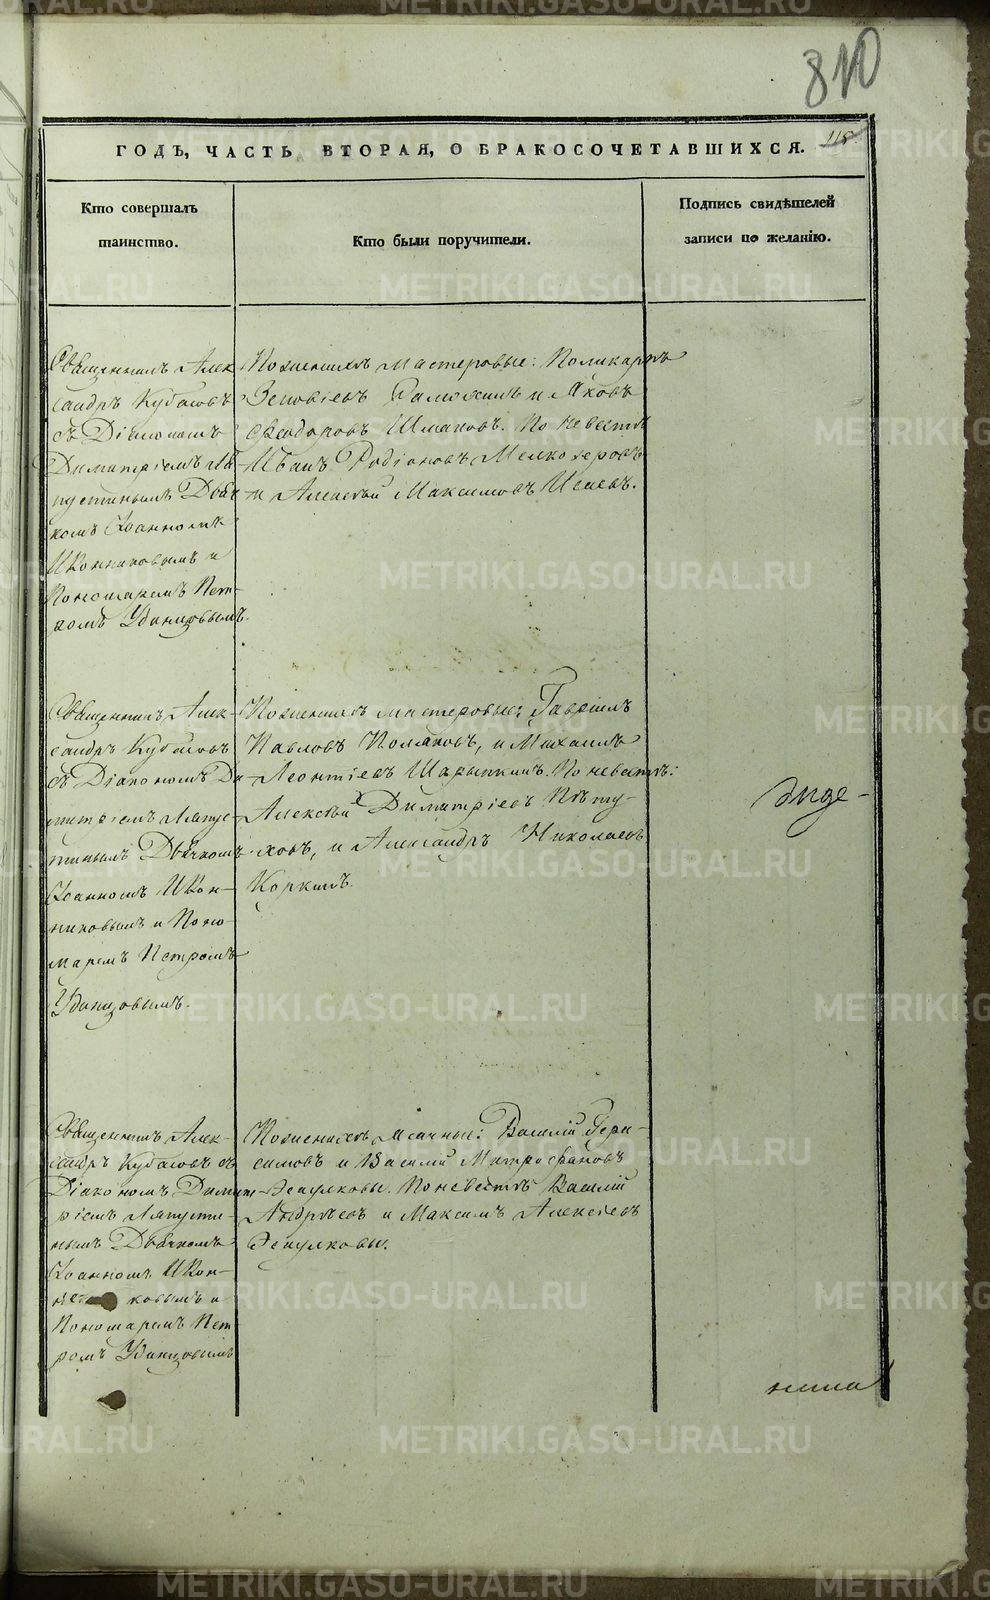 810
118
ГОДЪ, ЧАСТЬ ВТОРАЯ, О БРАКОСОЧЕТАВШИХСЯ.
Кто совершалъ
таинство.
Кто были поручители.
Подпись свидѣтелей
записи по желанію.
Священникъ Алек
сандръ Кубасовъ
съ Діакономъ
Димитріемъ Ла
пустинымъ Дьяч
комъ Іоанномъ
Иконниковымъ и
Пономаремъ Пет-
ромъ Удинцовымъ.
По женихѣ мастеровые: Поликарпъ
Зеновіевъ и Яковъ
Ѳеодоровъ Шмаковъ. По невестѣ
Иванъ Родіоновъ Мелкозеровъ
и Алексѣй Максимовъ Исаевъ.
Священникъ Алек-
сандръ Кубасовъ
съ Діакономъ Ди
митріемъ Лапус-
тинымъ Дьячкомъ
Іоанномъ Икон-
никовымъ и Поно-
маремъ Петромъ
Удинцовымъ.
По женихѣ мастеровые: Гавріилъ
Павловъ Поляковъ, и Михаилъ
Леонтіевъ Шарыпкинъ. По невестѣ:
Алексѣй Димитріевъ Пѣту-
ховъ, и Александръ Николаевъ
Коркинъ.
Священникъ Алек-
сандръ Кубасовъ съ
Діакономъ Димит-
ріемъ Лапусти-
нымъ Дьячкомъ
Іоанномъ Икон-
ковымъ и
Пономаремъ Пет-
ромъ Удинцовымъ
По женихѣ: Василій Гера-
симовъ и Василій Митрофановъ
Есаулковы. По невестѣ Василій
Андрѣевъ и Максимъ Алексѣевъ
Есаулковы.
METRIKI.GASO-URAL.RU